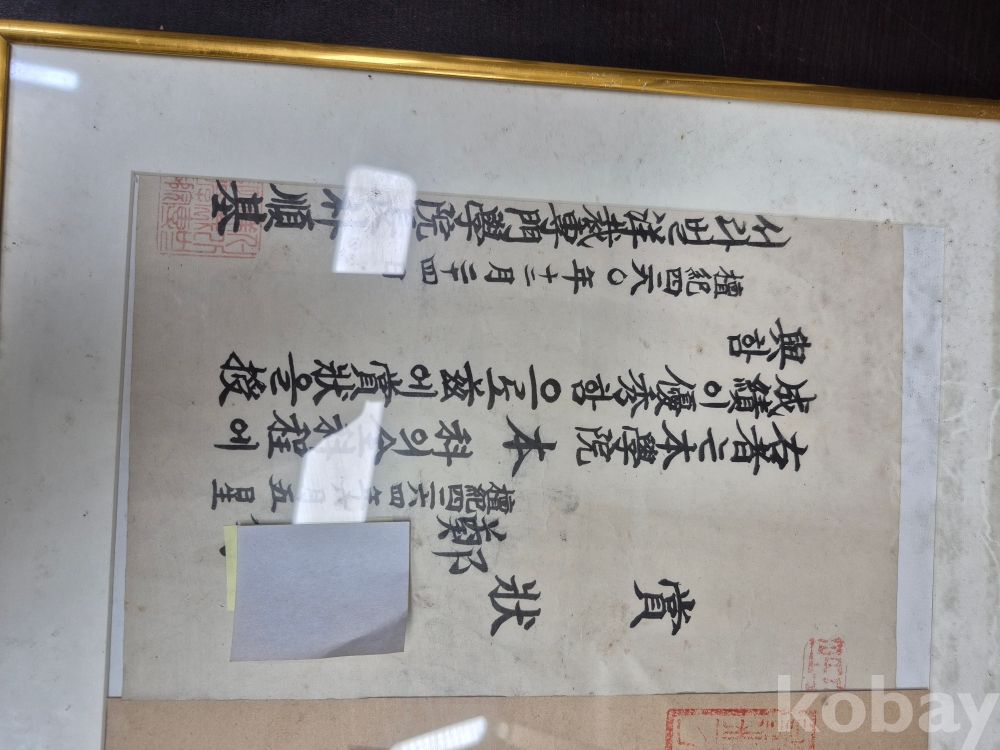 賞狀
鄭
檀紀四二六四年 月五日生
右者는本學院本科의 科程이
成績이優秀하으로玆에賞狀을授
與함
檀紀四二八〇年十二月二十四日
서라벌洋裁專門學院
順基
kobay